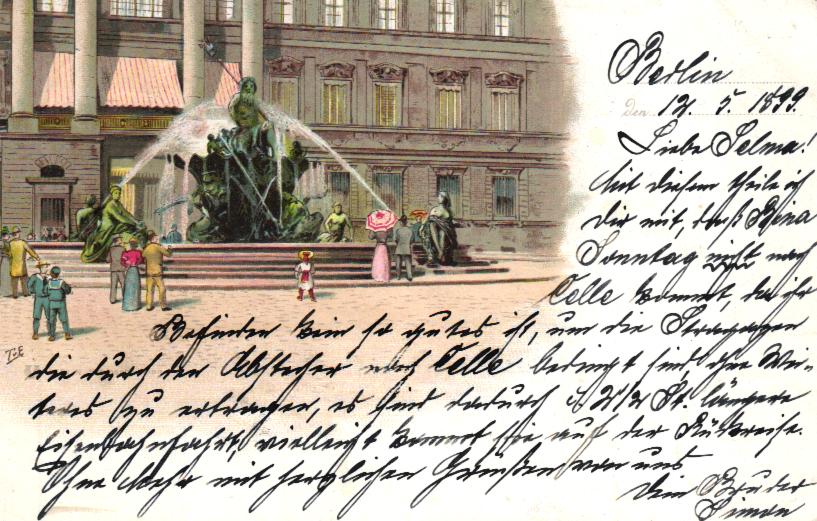 Berlin
Den 12. 5. 1899.
Liebe Selma!
Mit diesem theile ich
Dir mit, daß Rosa
Sonntag nicht nach
Celle kommt, da ihr
Befinden kein so gutes ist, um die Strapazen
die durch den Abstecher nach Celle bedingt sind ohne Wei-
teres zu ertragen, es sind dadurch 2 1/2 St. längere
Eisenbahnfahrt, vielleicht kommt sie auf der Rükreise.
Ohne Mehr mit herzlichen Grüßen von uns
Dein Bruder
Simon